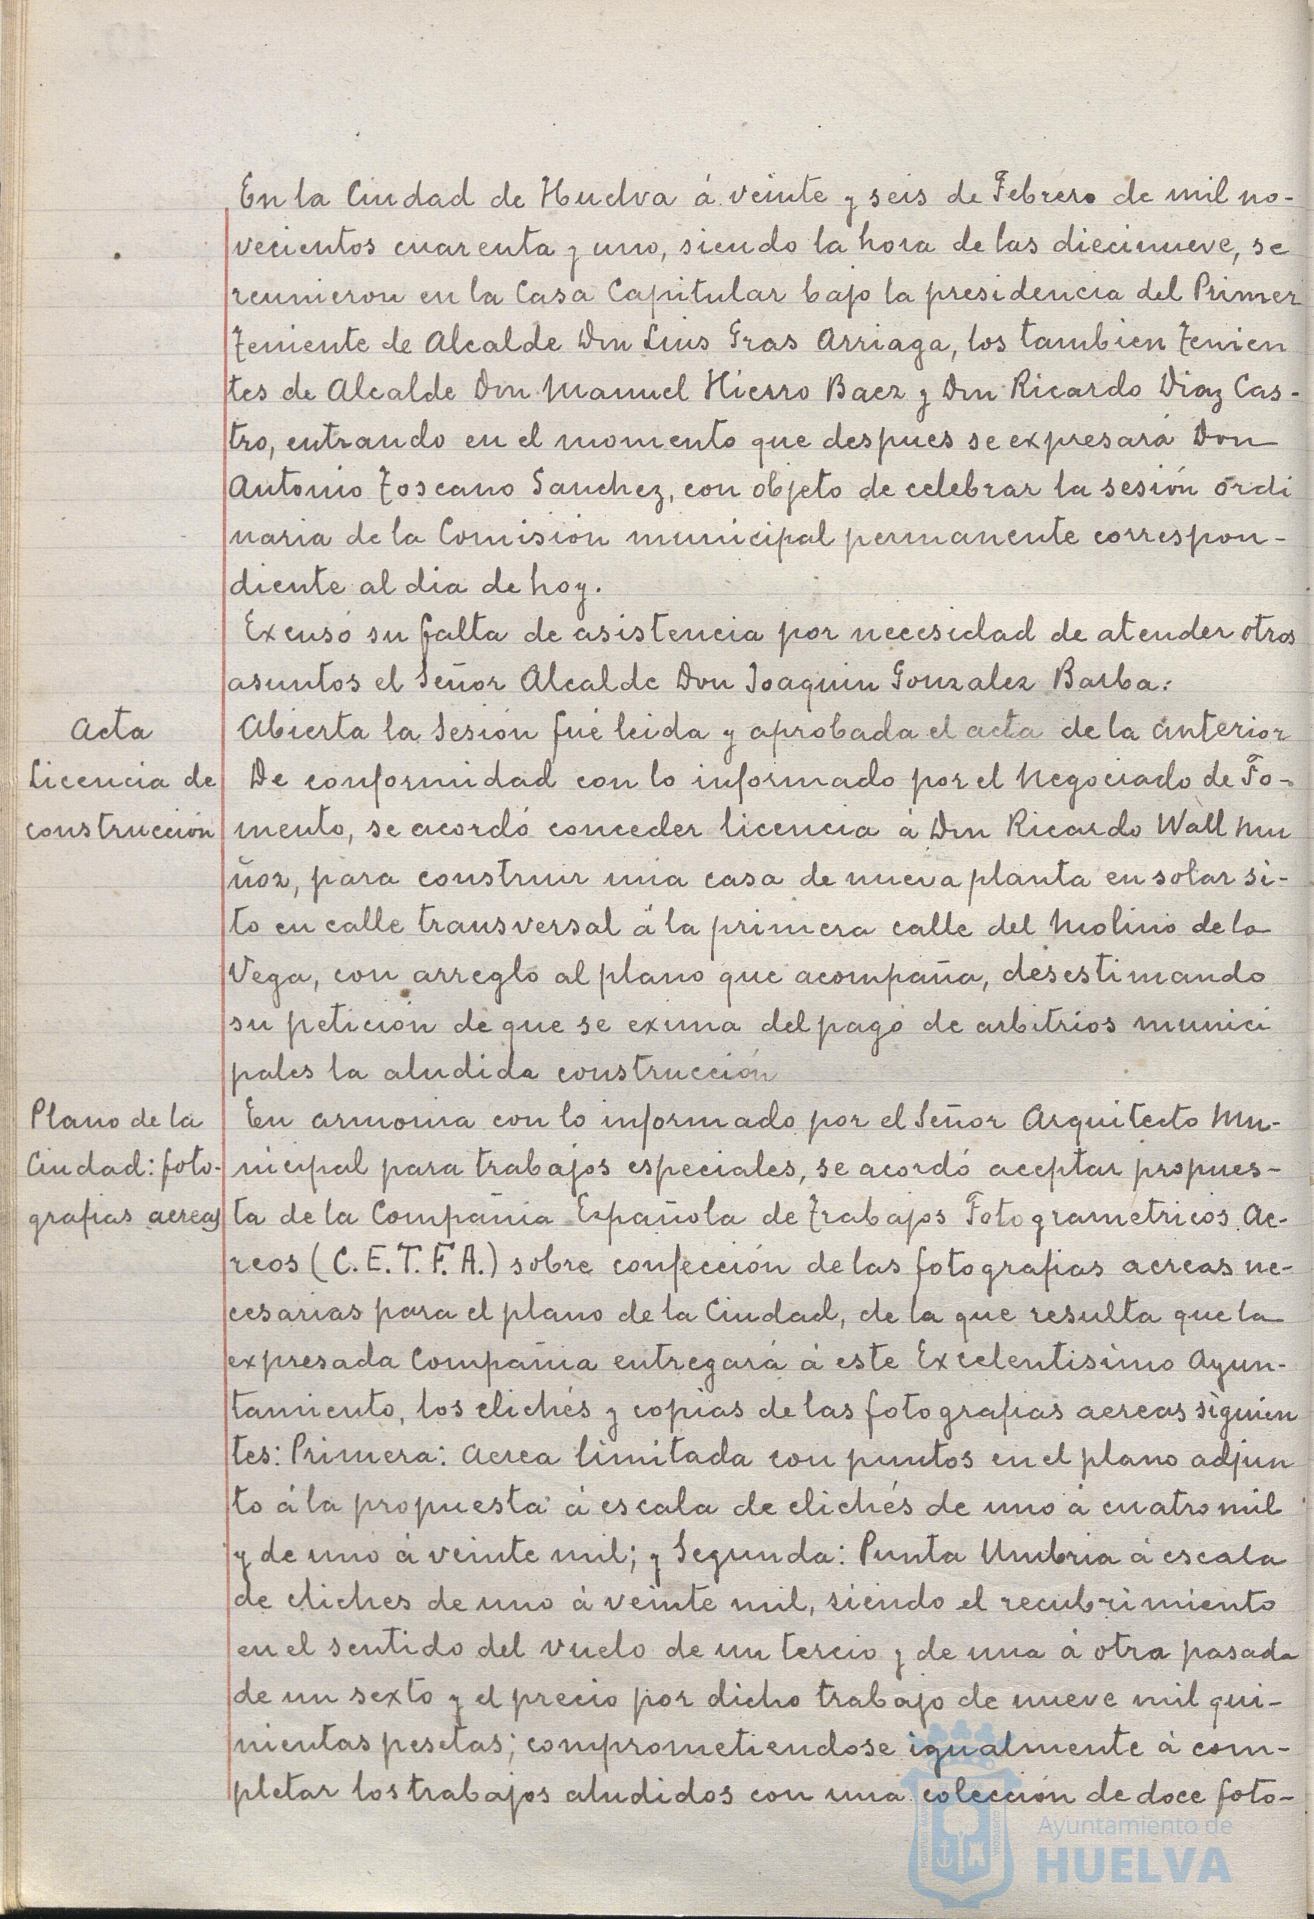 En la Ciudad de Huelva á veinte y seis de Febrero de mil no-
vecientos cuarenta y uno, siendo la hora de las diecinueve, se
reunieron en la Casa Capitular bajo la presidencia del Primer
Teniente de Alcalde Don Luis Gras Arriaga, los tambien Tenien
tes de Alcalde Don Manuel Hierro Baez y Don Ricardo Diaz Cas-
tro, entrando en el momento que despues se expresará Don
Antonio Toscano Sanchez, con objeto de celebrar la sesión ordi
naria de la Comisión municipal permanente correspon-
diente al dia de hoy.
Excusó su falta de asistencia por necesidad de atender otros
asuntos el Señor Alcalde Don Joaquin Gonzalez Barba.
Acta
Abierta la Sesión fué leida y aprobada el acta de la anterior
Licencia de
construcción
De conformidad con lo informado por el Negociado de Fo-
mento, se acordó conceder licencia á Don Ricardo Wall Mu
ñoz, para construir una casa de nueva planta en solar si-
to en calle transversal á la primera calle del Molino de la
Vega, con arreglo al plano que acompaña, desestimando
su petición de que se exima del pago de arbitrios munici
pales la aludida construcción
Plano de la
Ciudad: foto-
grafias aereas
En armonia con lo informado por el Señor Arquitecto Mu-
nicipal para trabajos especiales, se acordó aceptar propues-
ta de la Compañia Española de Trabajos Fotogrametricos Ae-
reos (C.E.T.F.A.) sobre confección de las fotografias aereas ne-
cesarias para el plano de la Ciudad, de la que resulta que la
expresada Compañia entregará á este Excelentisimo Ayun-
tamiento, los clichés y copias de las fotografias aereas siguien
tes: Primera: Aerea limitada con puntos en el plano adjun
to á la propuesta á escala de clichés de uno á cuatro mil
y de uno á veinte mil; y Segunda: Punta Umbria á escala
de cliches de uno á veinte mil, siendo el recubrimiento
en el sentido del vuelo de un tercio y de una á otra pasada
de un sexto y el precio por dicho trabajo de nueve mil qui-
nientas pesetas; comprometiendose igualmente á com-
pletar los trabajos aludidos con una colección de doce foto-
Ayuntamiento de
HUELVA